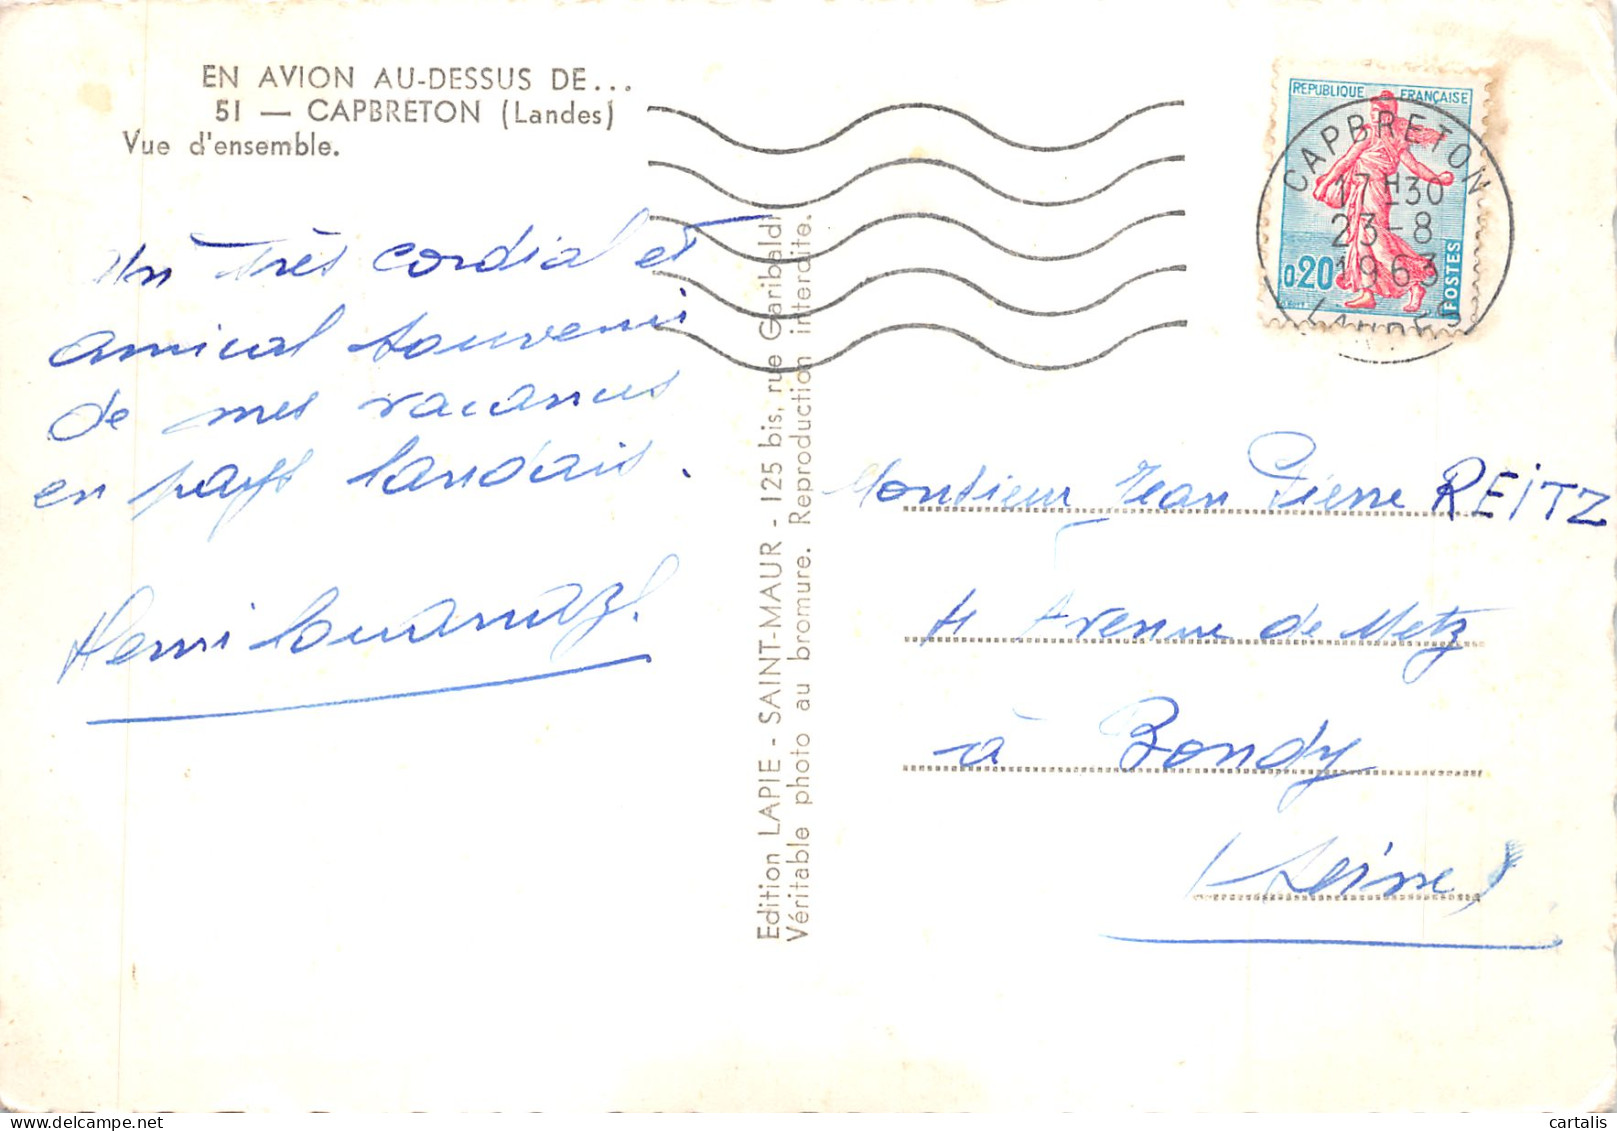 EN AVION AU-DESSUS DE...
51 — CAPBRETON (Landes)
Vue d'ensemble.
Un très cordial et
amical souvenir
de mes vacances
en pays landais.
Henri
Edition LAPIE - SAINT-MAUR - 125 bis, rue Garibaldi
Véritable photo au bromure. Reproduction interdite.
REPUBLIQUE FRANÇAISE
0,20
POSTES
CAPBRETON
17H30
23-8
1963
LANDES
Monsieur Jean Pierre REITZ
Avenue de Metz
à Bondy
(Seine)
cartalis